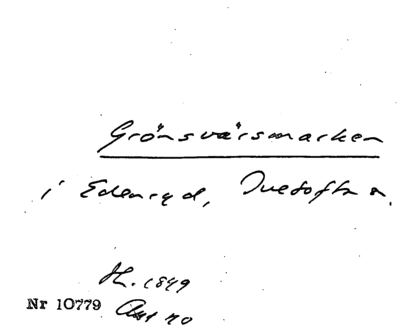 Grönsvärsmarken
i Edenryd, Ivetofta s.
H. 1849
Nr 10779 Akt 70